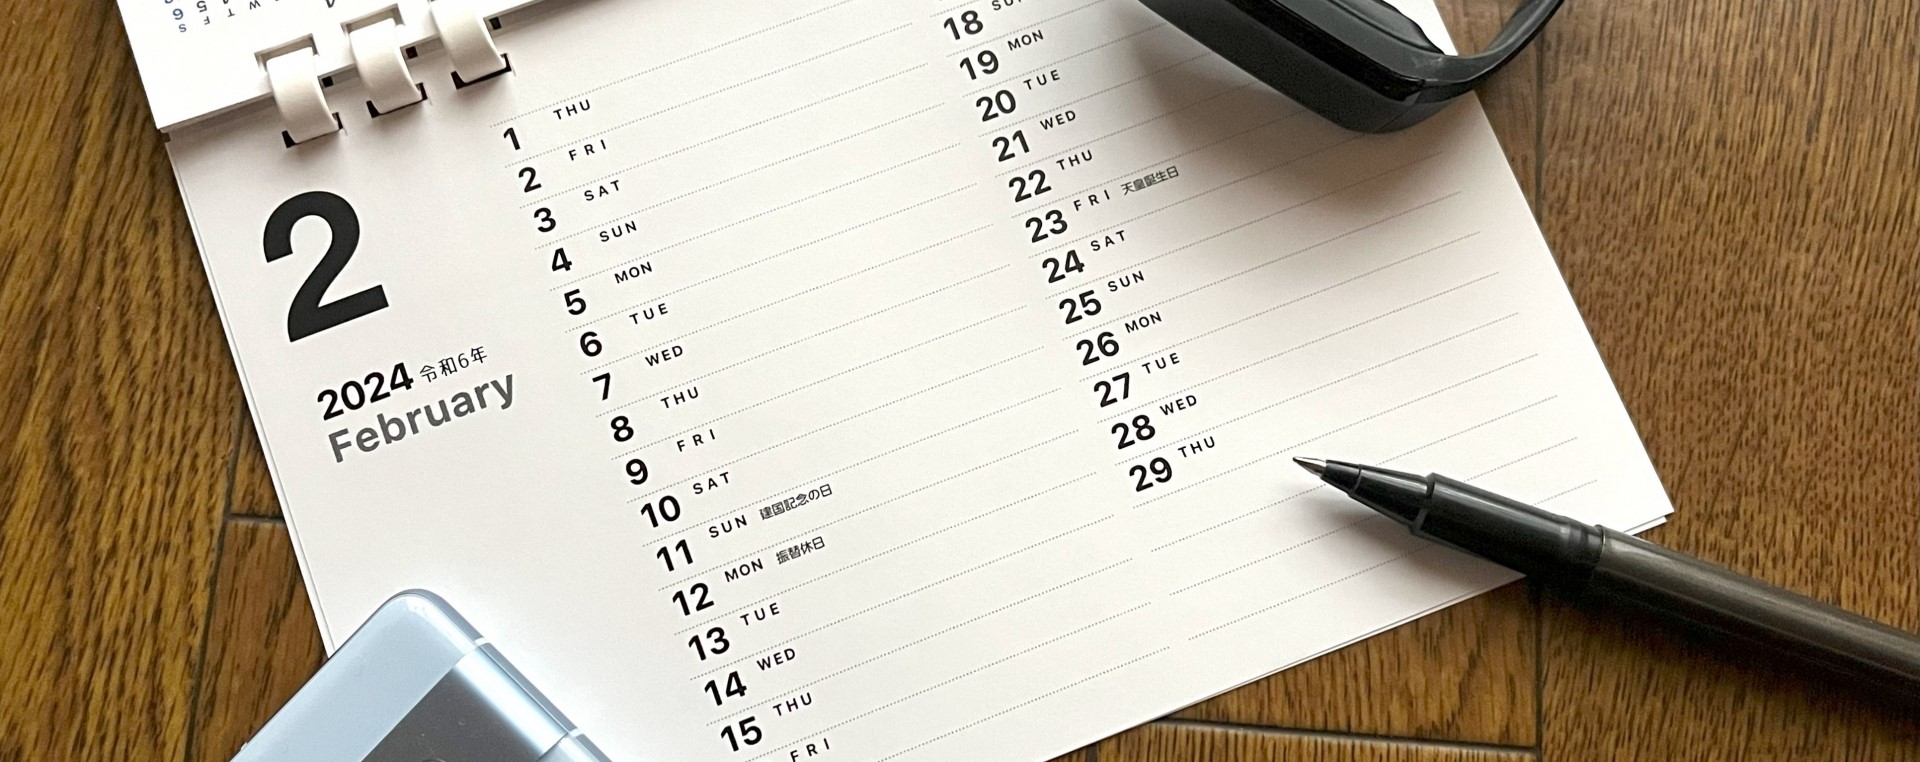 2
2024 令和6年
February
1 THU
2 FRI
3 SAT
4 SUN
5 MON
6 TUE
7 WED
8 THU
9 FRI
10 SAT
11 SUN 建国記念の日
12 MON 振替休日
13 TUE
14 WED
15 THU
FRI
18 SUN
19 MON
20 TUE
21 WED
22 THU
23 FRI 天皇誕生日
24 SAT
25 SUN
26 MON
27 TUE
28 WED
29 THU